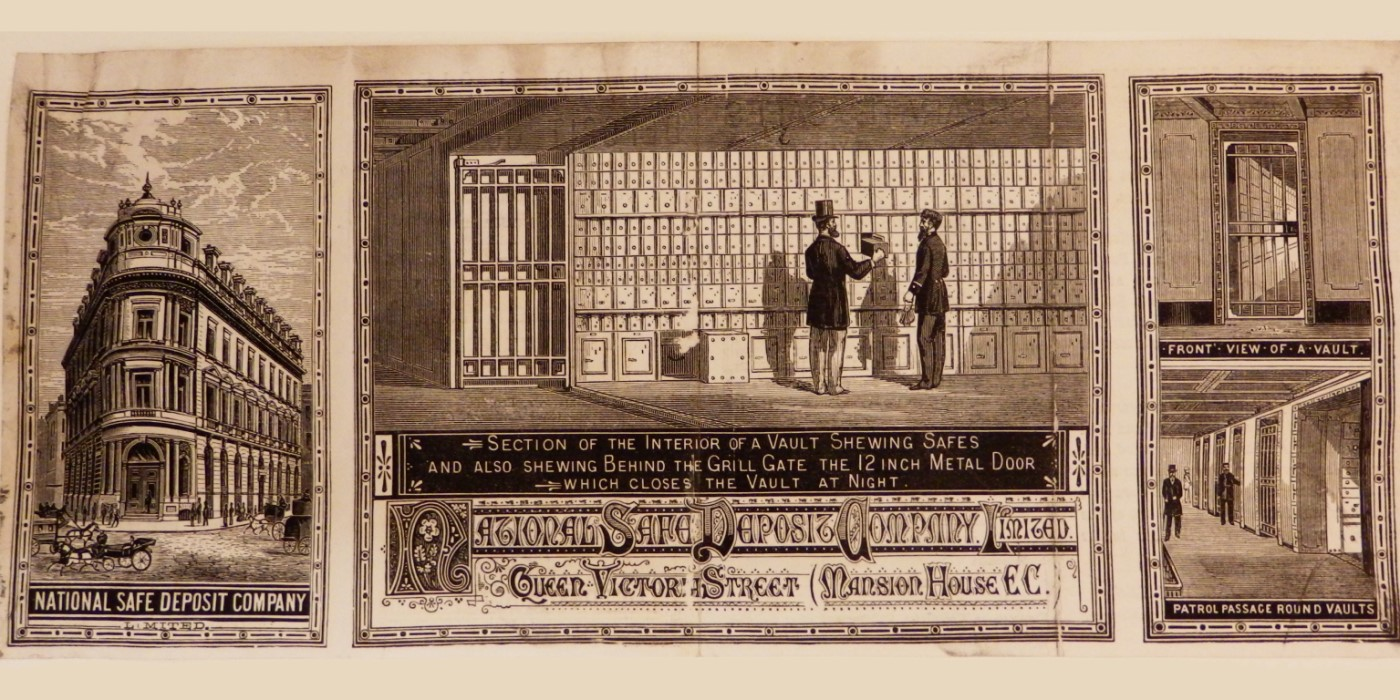 NATIONAL SAFE DEPOSIT COMPANY
LIMITED.
SECTION OF THE INTERIOR OF A VAULT SHEWING SAFES
AND ALSO SHEWING BEHIND THE GRILL GATE THE 12 INCH METAL DOOR
WHICH CLOSES THE VAULT AT NIGHT.
NATIONAL SAFE DEPOSIT COMPANY. LIMITED.
QUEEN VICTORIA STREET (MANSION HOUSE E.C.)
FRONT · VIEW · OF · A · VAULT.
PATROL PASSAGE ROUND VAULTS